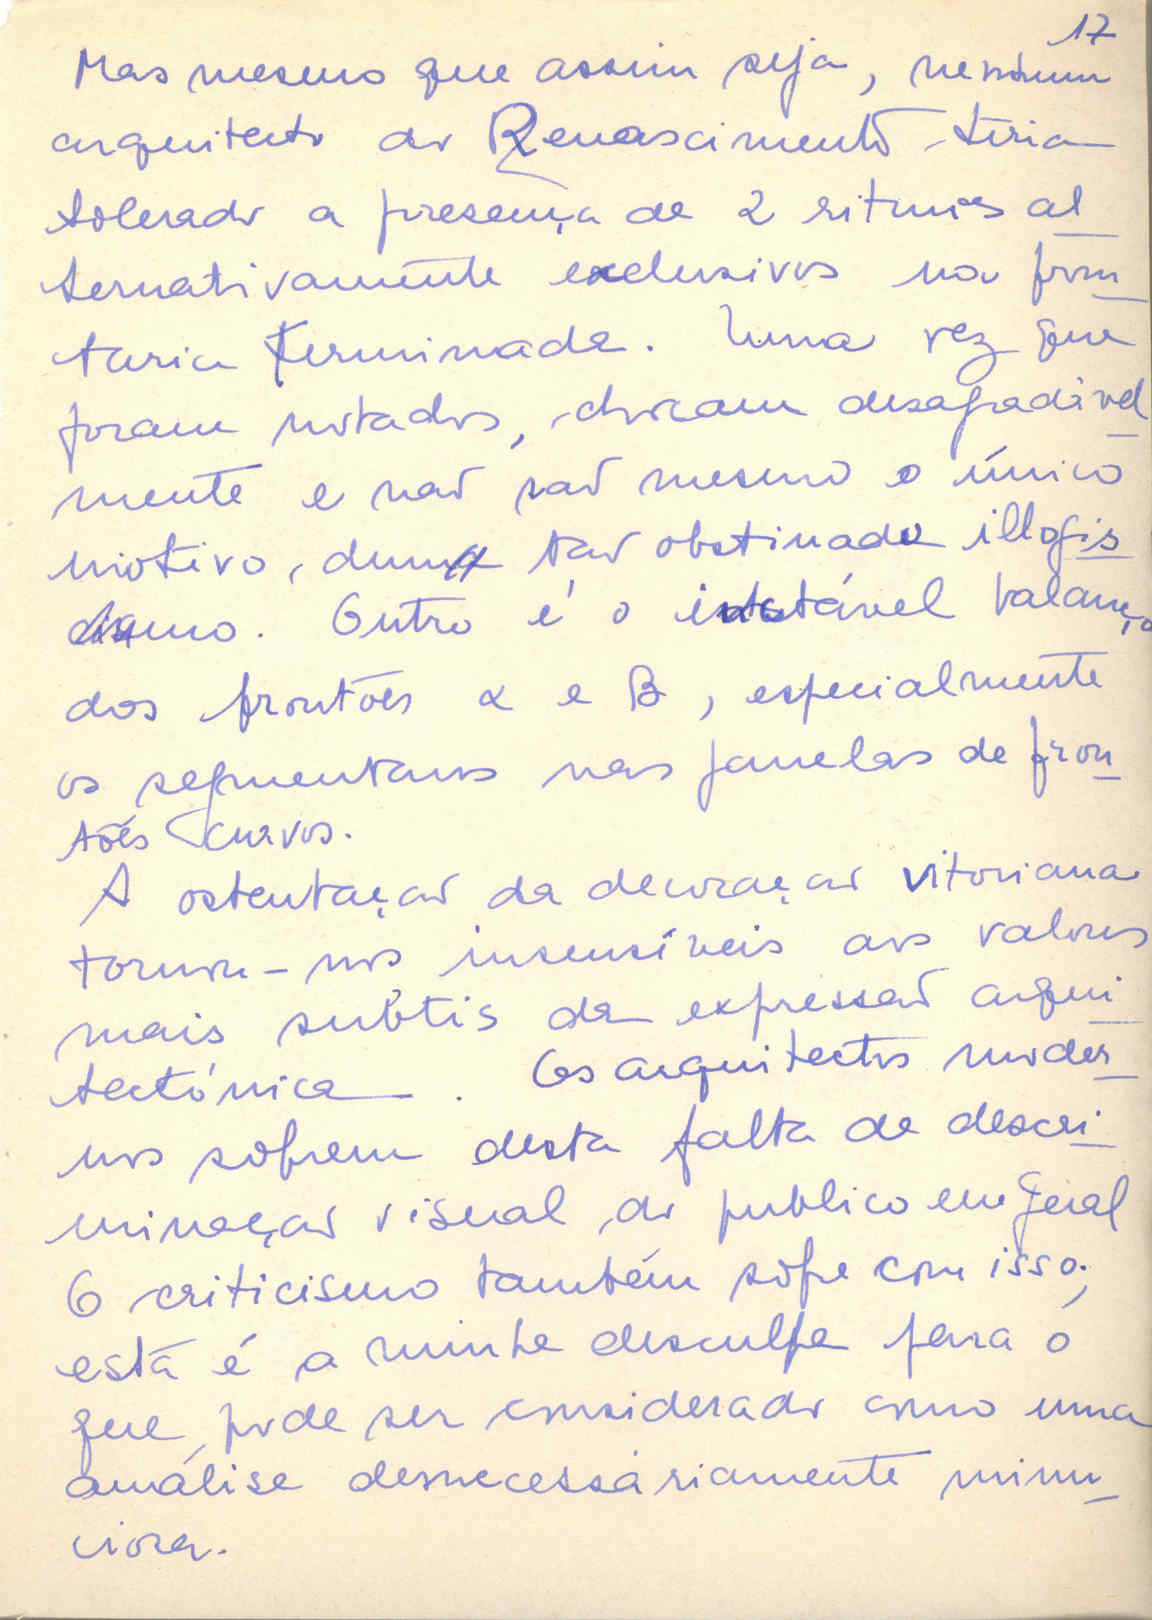 17
Mas mesmo que assim seja, nenhum
arquitecto do Renascimento teria
tolerado a presença de 2 ritmos al
ternativamente exclusivos na fron
taria terminada. Uma vez que
foram notados, chocam desagradável
mente e não são mesmo o único
motivo, dum tão obstinado illogis
cismo. Outro é o instável balanço
dos frontões α e B, especialmente
os segmentares nas janelas de fron
tões curvos.
A ostentação da decoração vitoriana
tornou-nos insensíveis aos valores
mais subtis da expressão arqui
tectónica. Os arquitectos moder
nos sofrem desta falta de descri
minação visual do publico em geral
O criticismo também sofre com isso;
esta é a minha desculpa para o
que pode ser considerado como uma
análise desnecessáriamente minu
ciosa.